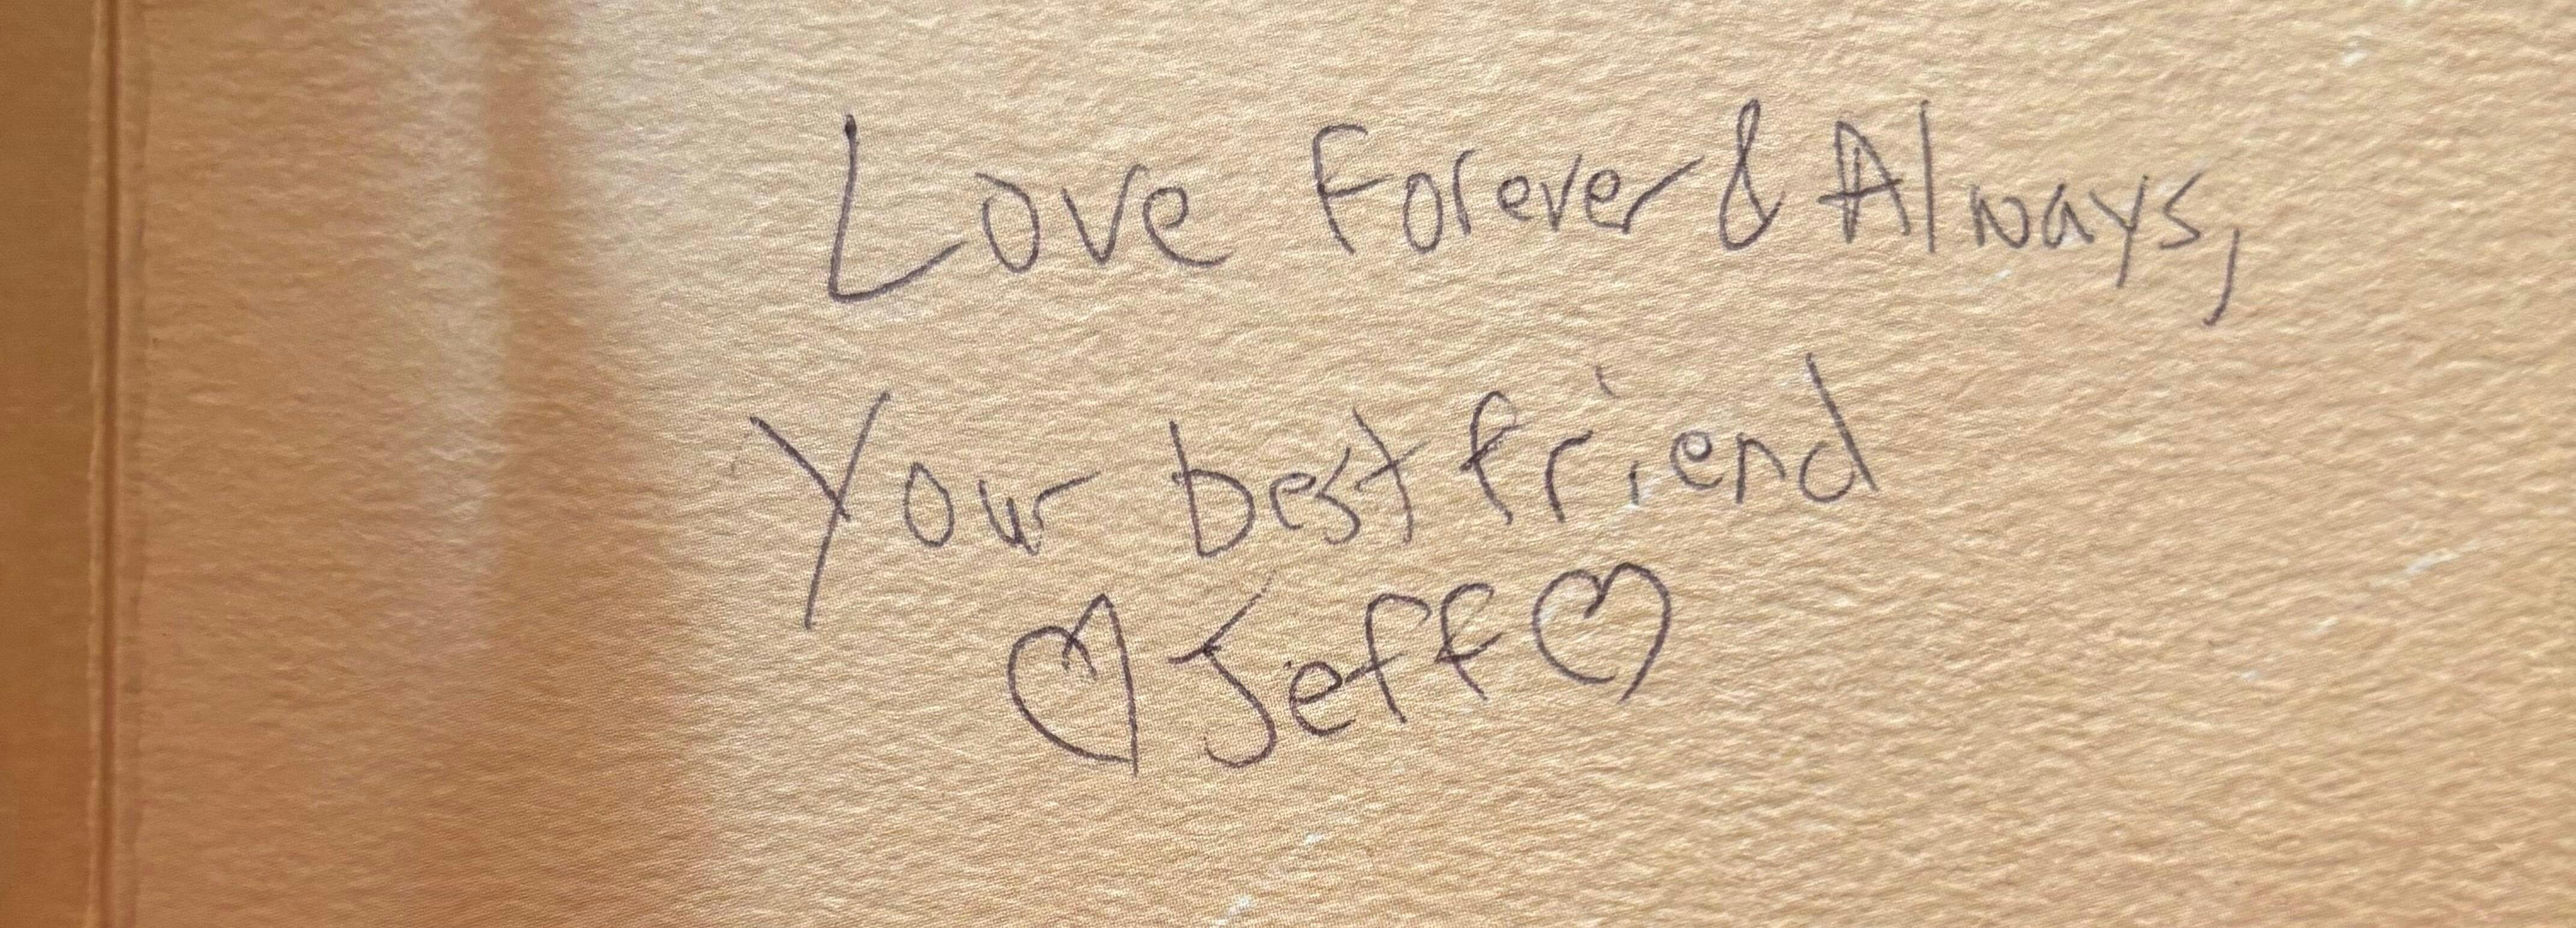 Love Forever & Always,
Your best friend
♡ Jeff ♡